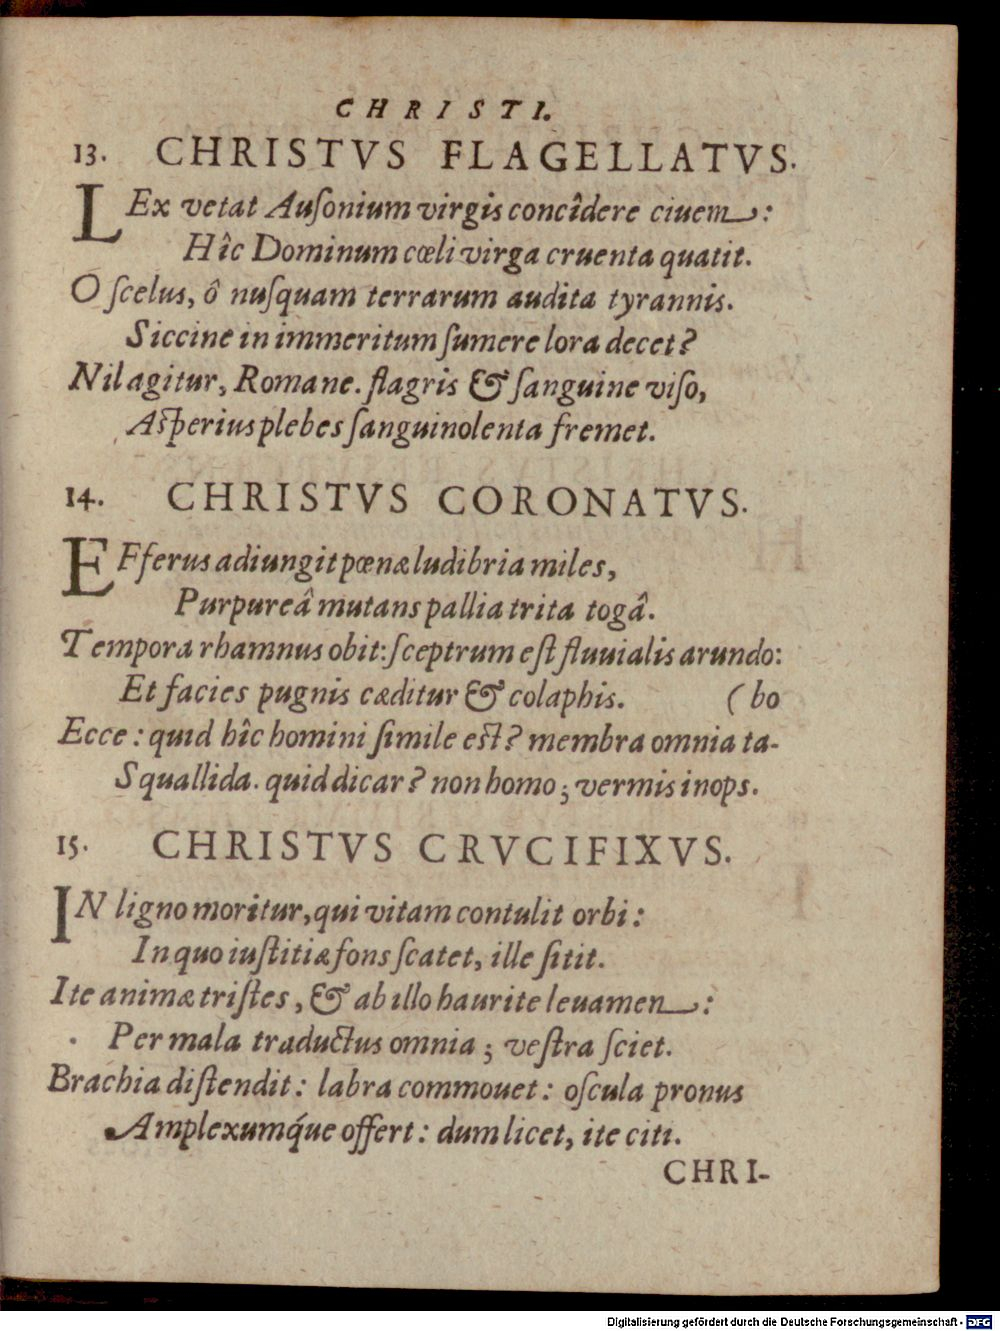 CHRISTI.
13. CHRISTVS FLAGELLATVS.
LEx vetat Auſonium virgis concîdere ciuem:
Hîc Dominum cœli virga cruenta quatit.
O ſcelus, ô nuſquam terrarum audita tyrannis.
Siccine in immeritum ſumere lora decet?
Nil agitur, Romane. flagris & ſanguine viſo,
Aſperius plebes ſanguinolenta fremet.
14. CHRISTVS CORONATVS.
EFferus adiungit pœnæ ludibria miles,
Purpureâ mutans pallia trita togâ.
Tempora rhamnus obit: ſceptrum eſt fluuialis arundo:
Et facies pugnis cæditur & colaphis. (bo
Ecce: quid hîc homini ſimile eſt? membra omnia ta-
Squallida. quid dicar? non homo; vermis inops.
15. CHRISTVS CRVCIFIXVS.
IN ligno moritur, qui vitam contulit orbi:
In quo iuſtitiæ fons ſcatet, ille ſitit.
Ite animæ triſtes, & ab illo haurite leuamen:
Per mala traductus omnia; veſtra ſciet.
Brachia diſtendit: labra commouet: oſcula pronus
Amplexumq́ue offert: dum licet, ite citi.
CHRI-
Digitalisierung gefördert durch die Deutsche Forschungsgemeinschaft - DFG